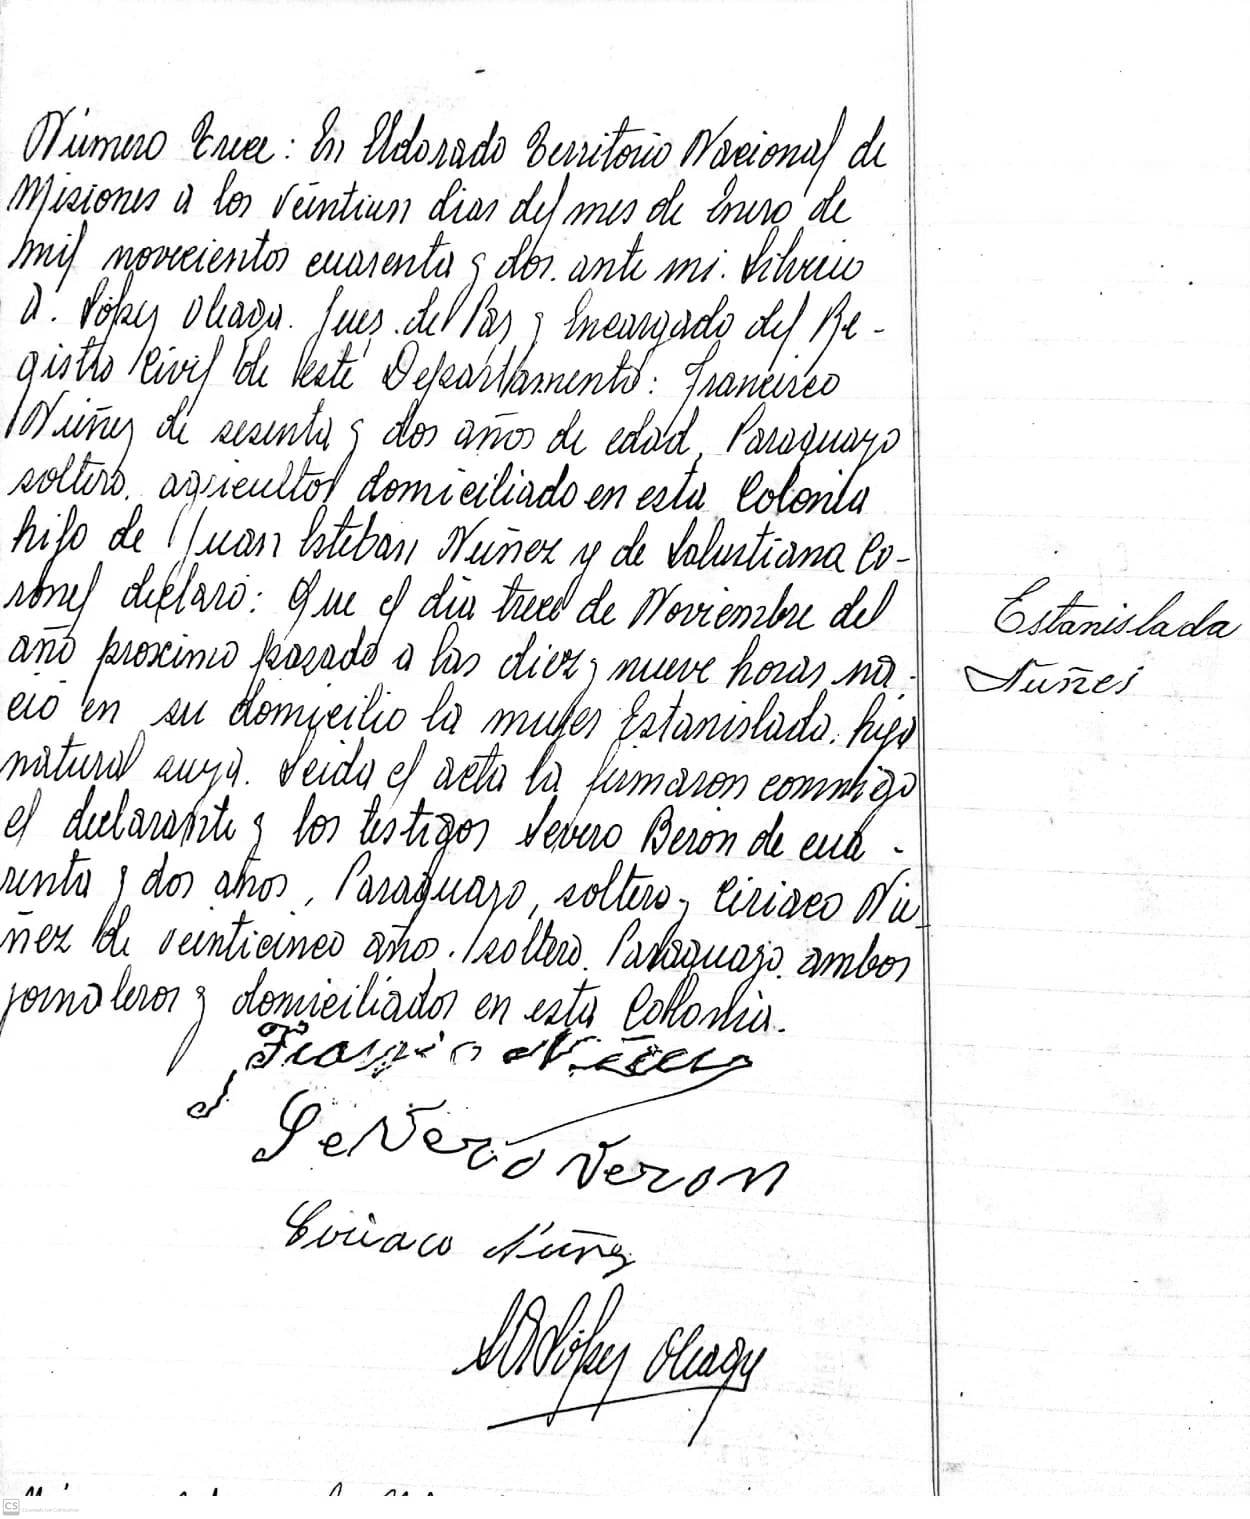 Número Trece: En Eldorado Territorio Nacional de
Misiones a los veintiun dias del mes de Enero de
mil novecientos cuarenta y dos. ante mi. Silverio
A. López Oleaga. Juez. de Paz y Encargado del Re-
gistro Civil de este Departamento: Francisco
Núñez de sesenta y dos años de edad, Paraguayo
soltero. agricultor domiciliado en esta Colonia
hijo de Juan Esteban Núñez y de Salustiana Co-
ronel declaró: Que el día trece de Noviembre del
año proximo pasado a las diez y nueve horas na-
ció en su domicilio la mujer Estanislada. hija
natural suya. Leida el acta la firmaron conmigo
el declarante y los testigos Severo Beron de cua-
renta y dos años, Paraguayo, soltero y Ciriaco Nú-
ñez de veinticinco años. soltero. Paraguayo. ambos
jornaleros y domiciliados en esta Colonia.
Estanislada
Nuñes
Severo Veron
Ciriaco Núñez
S A López Oleaga
CS